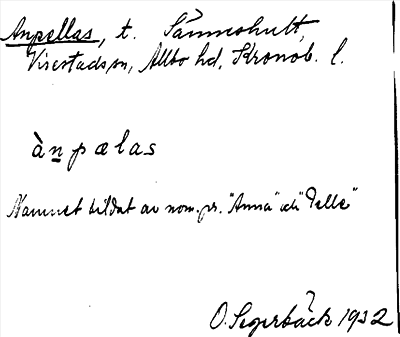 Anpellas, t. Sånnshult,
Virestads sn, Allbo hd, Kronob. l.
ànpælas
Namnet bildat av nom. pr. "Anna" och "Pelle"
O. Segerbäck 1932